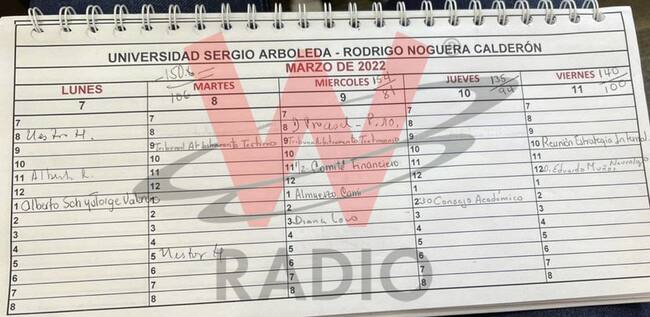 UNIVERSIDAD SERGIO ARBOLEDA - RODRIGO NOGUERA CALDERÓN
MARZO DE 2022
LUNES
7
7
8 Nestor H.
9
10
11 Albert R.
12
1 Alberto Jorge
2
3
4
5
6
7
8
150.6
106
MARTES
8
7
8
9 Tribunal Arbitramento
10
11
12
1
2
3
4
5 Nestor H
6
7
8
MIERCOLES
154
81
9
7
8
9 Tribunal Arbitramento Testimonio
10
11 1/2 Comité Financiero
12
1 Almuerzo Cami
2
3 Diana
4
5
6
7
8
JUEVES
135
94
10
7
8
9
10
11
12
1
2 30 Consejo Académico
3
4
5
6
7
8
VIERNES
140
100
11
7
8
9
10 Reunión Estrategia
11
12 D. Eduardo Muñoz
1
2
3
4
5
6
7
8
W
RADIO